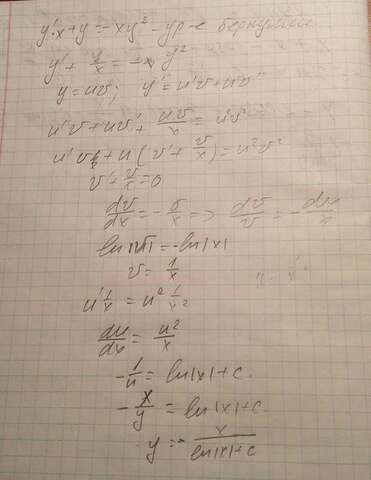 y'·x+y = xy² - ур-е Бернулли
y' + y/x = y²
y = uv; y' = u'v + uv'
u'v + uv' + uv/x = u²v²
u'v + u(v' + v/x) = u²v²
v' + v/x = 0
dv/dx = -v/x => dv/v = -dx/x
ln|v| = -ln|x|
v = 1/x
u' 1/x = u² 1/x²
du/dx = u²/x
-1/u = ln|x| + c
-x/y = ln|x| + c
y = - x/(ln|x| + c)